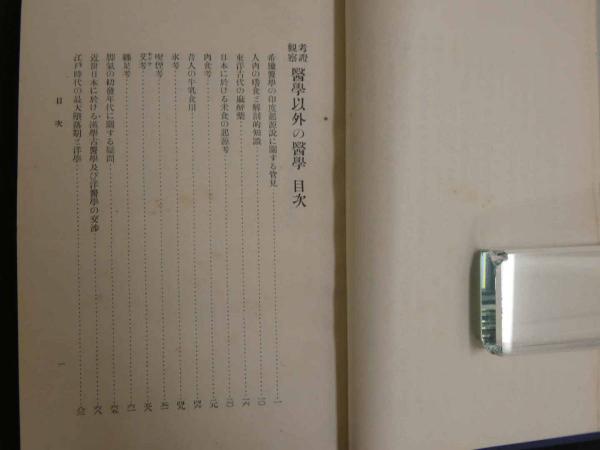 考證
觀察
醫學以外の醫學 目次
希臘醫學の印度起源說に關する管見 一
人肉の嗜食と解剖的知識 一〇
東洋古代の麻醉藥 一六
日本に於ける米食の起源考 二〇
肉食考
昔人の牛乳食用
氷考
喫煙考
艾考
纏足考
脚氣の初發年代に關する疑問
近世日本に於ける漢學古醫學及び洋醫學の交涉
江戶時代の最大墮落期と洋學
目次
一